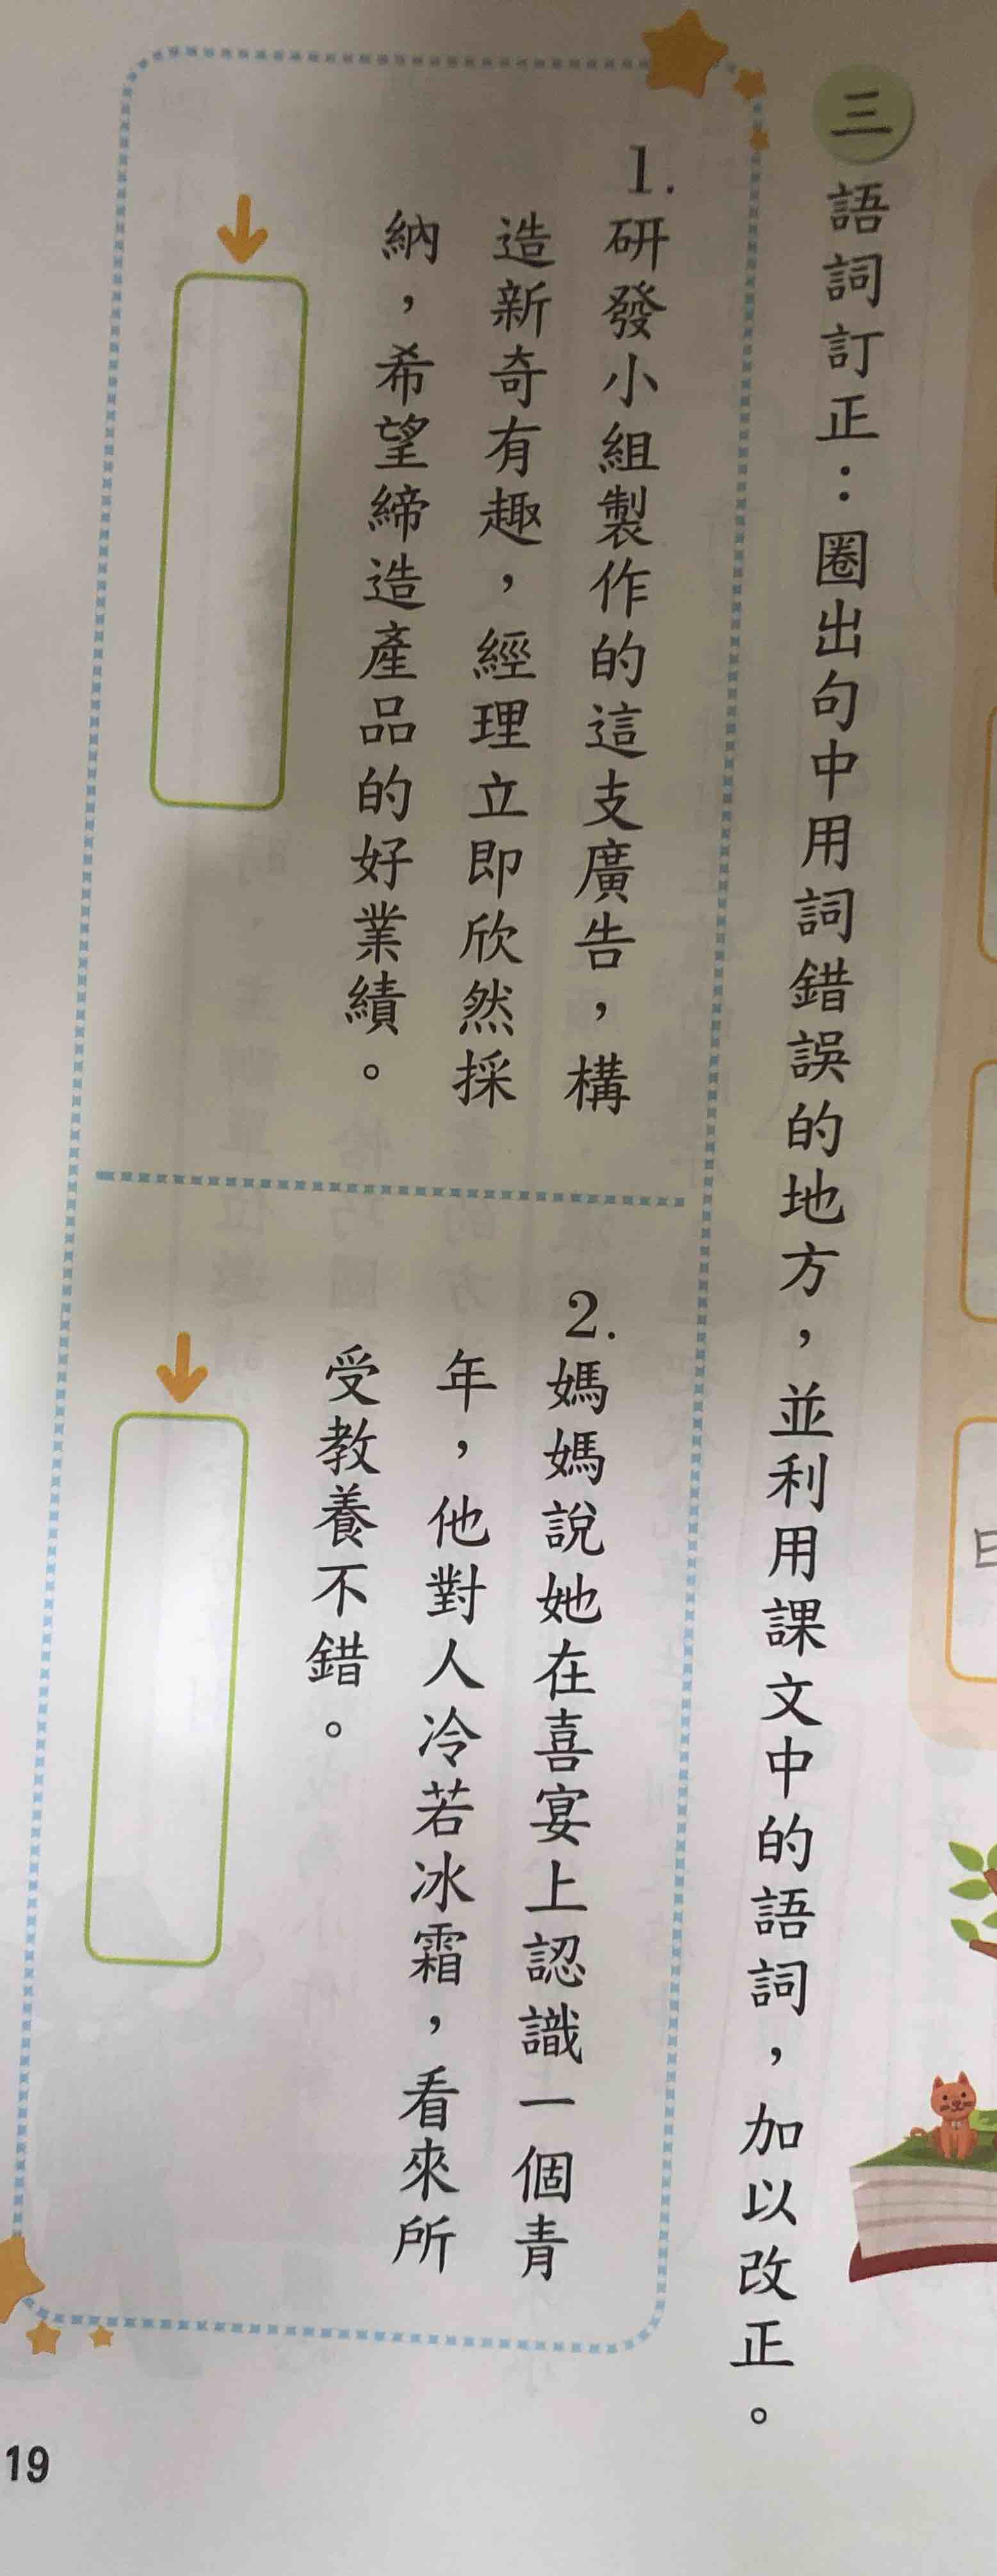 三 語詞訂正：圈出句中用詞錯誤的地方，並利用課文中的語詞，加以改正。
1.研發小組製作的這支廣告，構
造新奇有趣，經理立即欣然採
納，希望締造產品的好業績。
2.媽媽說她在喜宴上認識一個青
年，他對人冷若冰霜，看來所
受教養不錯。
19